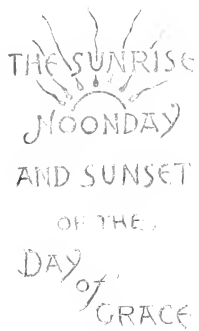 THE SUNRISE
NOONDAY
AND SUNSET
OF THE
DAY
of
GRACE